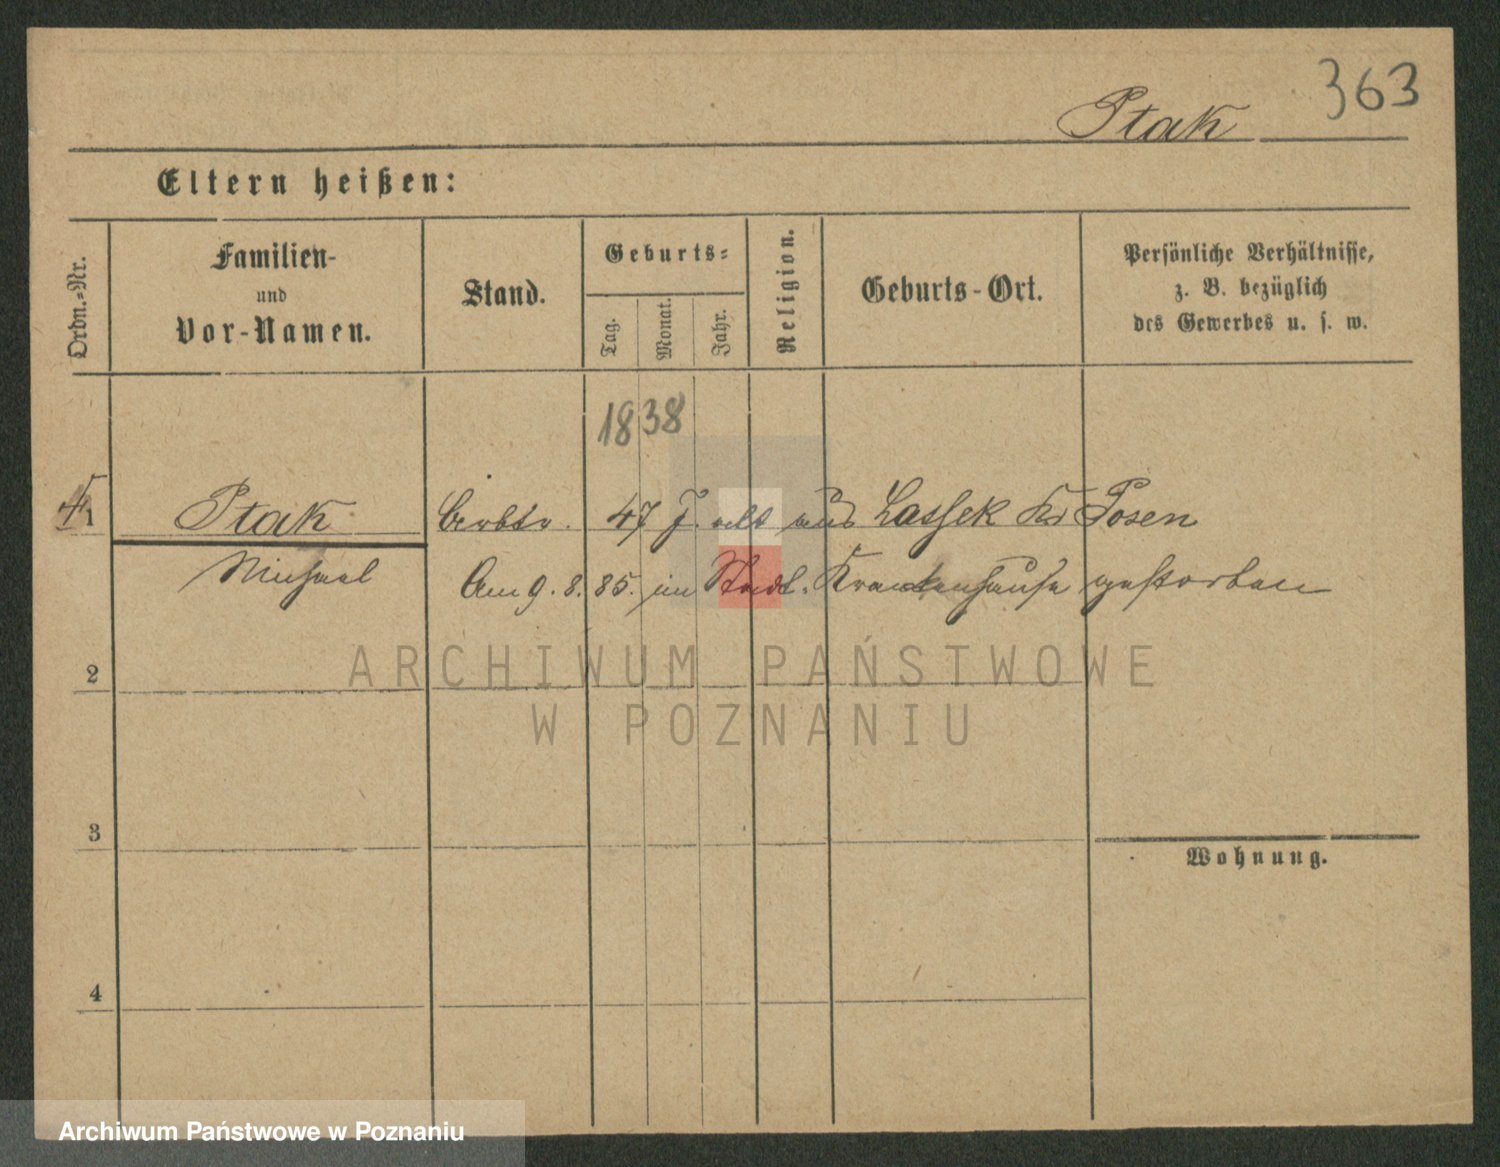 363
Ptak
Eltern heißen:
Ordn.=Nr.
Familien-
und
Vor-Namen.
Stand.
Geburts=
Tag.
Monat.
Jahr.
Religion.
Geburts-Ort.
Persönliche Verhältnisse,
z. B. bezüglich
des Gewerbes u. s. w.
1838
1 Ptak Arbtr. 47 J. alt aus Lassek Kr Posen
Michael Am 9. 8. 85. im Stadt. Krankenhause gestorben
2
3
4
Wohnung.
ARCHIWUM PAŃSTWOWE
W POZNANIU
Archiwum Państwowe w Poznaniu